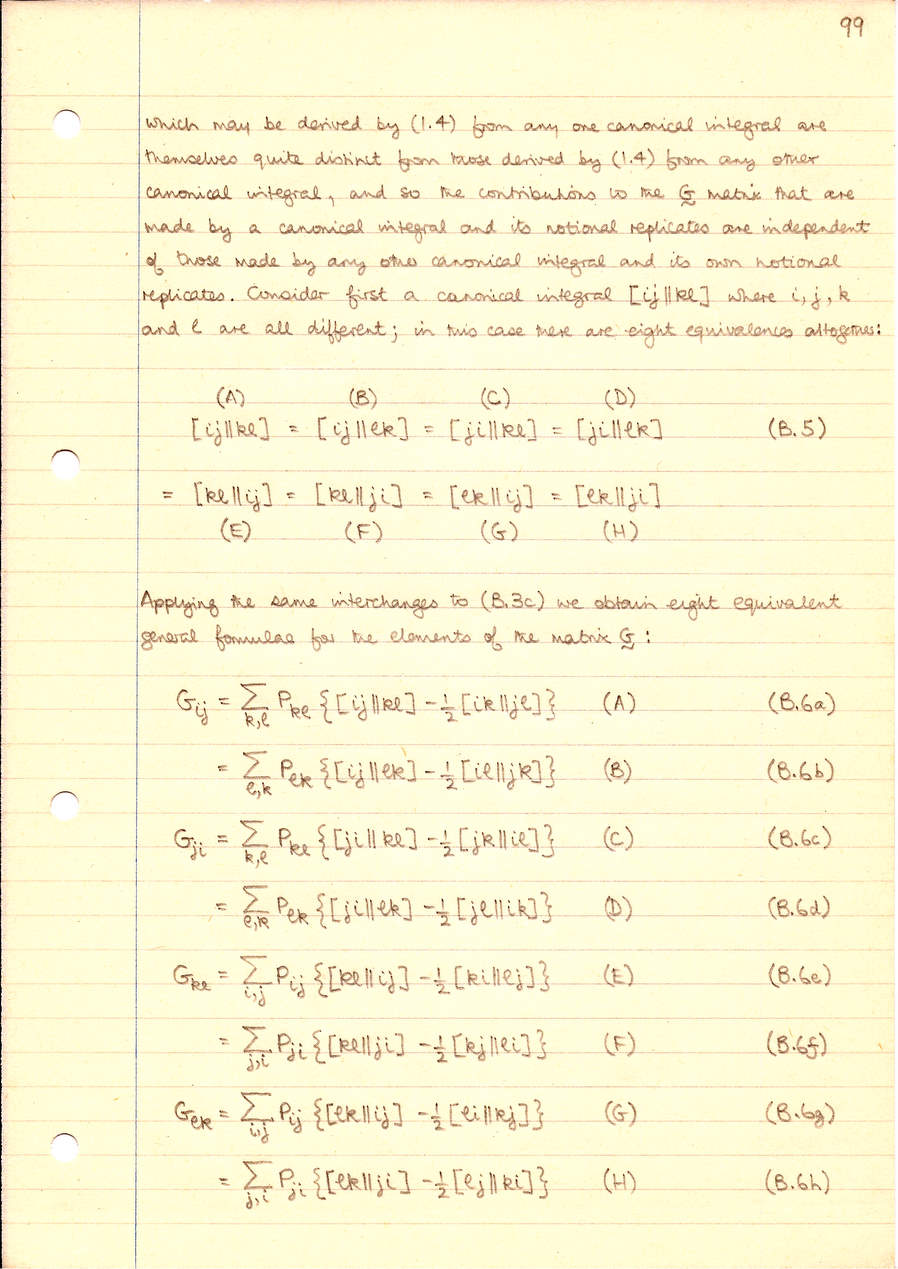 99
which may be derived by (1.4) from any one canonical integral are
themselves quite distinct from those derived by (1.4) from any other
canonical integral, and so the contributions to the G matrix that are
made by a canonical integral and its notional replicates are independent
of those made by any other canonical integral and its own notional
replicates. Consider first a canonical integral [ij||kl] where i, j, k
and l are all different; in this case there are eight equivalences altogether:
(A) (B) (C) (D)
[ij||kl] = [ij||lk] = [ji||kl] = [ji||lk] (B.5)
= [kl||ij] = [kl||ji] = [lk||ij] = [lk||ji]
(E) (F) (G) (H)
Applying the same interchanges to (B.3c) we obtain eight equivalent
general formulae for the elements of the matrix G :
G_ij = ∑_k,l P_kl {[ij||kl] - ½[ik||jl]} (A) (B.6a)
= ∑_l,k P_lk {[ij||lk] - ½[il||jk]} (B) (B.6b)
G_ji = ∑_k,l P_kl {[ji||kl] - ½[jk||il]} (C) (B.6c)
= ∑_l,k P_lk {[ji||lk] - ½[jl||ik]} (D) (B.6d)
G_kl = ∑_i,j P_ij {[kl||ij] - ½[ki||lj]} (E) (B.6e)
= ∑_j,i P_ji {[kl||ji] - ½[kj||li]} (F) (B.6f)
G_lk = ∑_i,j P_ij {[lk||ij] - ½[li||kj]} (G) (B.6g)
= ∑_j,i P_ji {[lk||ji] - ½[lj||ki]} (H) (B.6h)